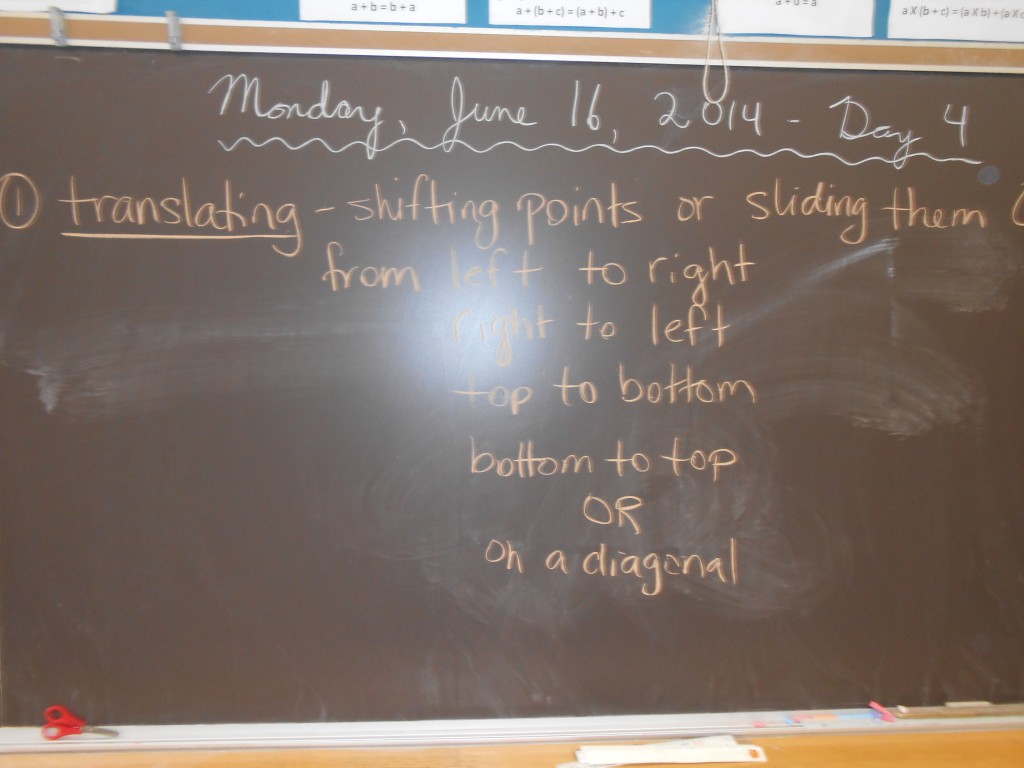 a + b = b + a
a + (b + c) = (a + b) + c
a + 0 = a
a X (b + c) = (a X b) + (a X c
Monday, June 16, 2014 - Day 4
① translating - shifting points or sliding them
from left to right
right to left
top to bottom
bottom to top
OR
on a diagonal